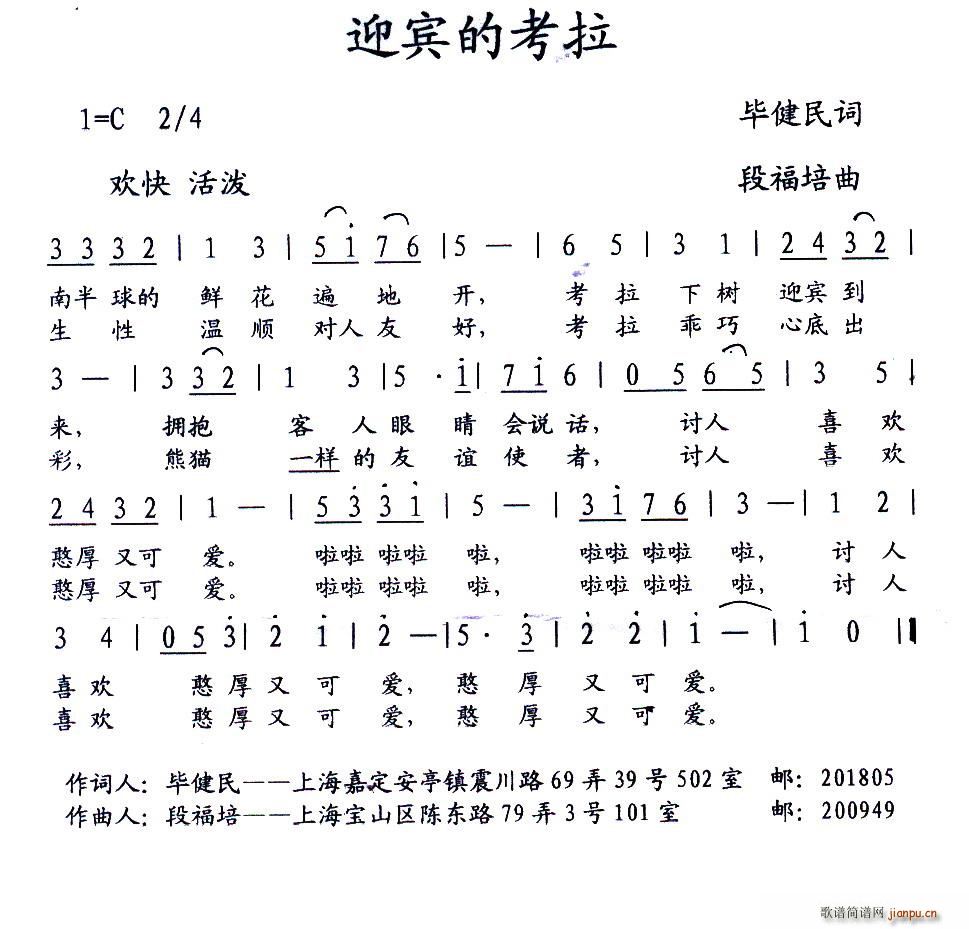 迎宾的考拉
1=C 2/4 毕健民词
欢快 活泼 段福培曲
3 3 3 2 | 1 3 | 5 i 7 6 | 5 — | 6 5 | 3 1 | 2 4 3 2 |
南半 球的 鲜 花 遍 地 开, 考 拉 下 树 迎宾 到
生 性 温 顺 对人 友 好, 考 拉 乖 巧 心底 出
3 — | 3 3 2 | 1 3 | 5 · i | 7 i 6 | 0 5 6 5 | 3 5 |
来, 拥抱 客 人 眼 睛 会说 话, 讨人 喜 欢
彩, 熊猫 一样 的 友 谊 使 者, 讨人 喜 欢
2 4 3 2 | 1 — | 5 3 3 1 | 5 — | 3 i 7 6 | 3 — | 1 2 |
憨厚 又可 爱。 啦啦 啦啦 啦, 啦啦 啦啦 啦, 讨 人
憨厚 又可 爱。 啦啦 啦啦 啦, 啦啦 啦啦 啦, 讨 人
3 4 | 0 5 3 | 2 i | 2 — | 5 · 3 | 2 2 | i — | i 0 ||
喜 欢 憨 厚 又 可 爱, 憨 厚 又 可 爱。
喜 欢 憨 厚 又 可 爱, 憨 厚 又 可 爱。
作词人: 毕健民——上海嘉定安亭镇震川路 69 弄 39 号 502 室 邮: 201805
作曲人: 段福培——上海宝山区陈东路 79 弄 3 号 101 室 邮: 200949
歌谱简谱网 jianpu.cn